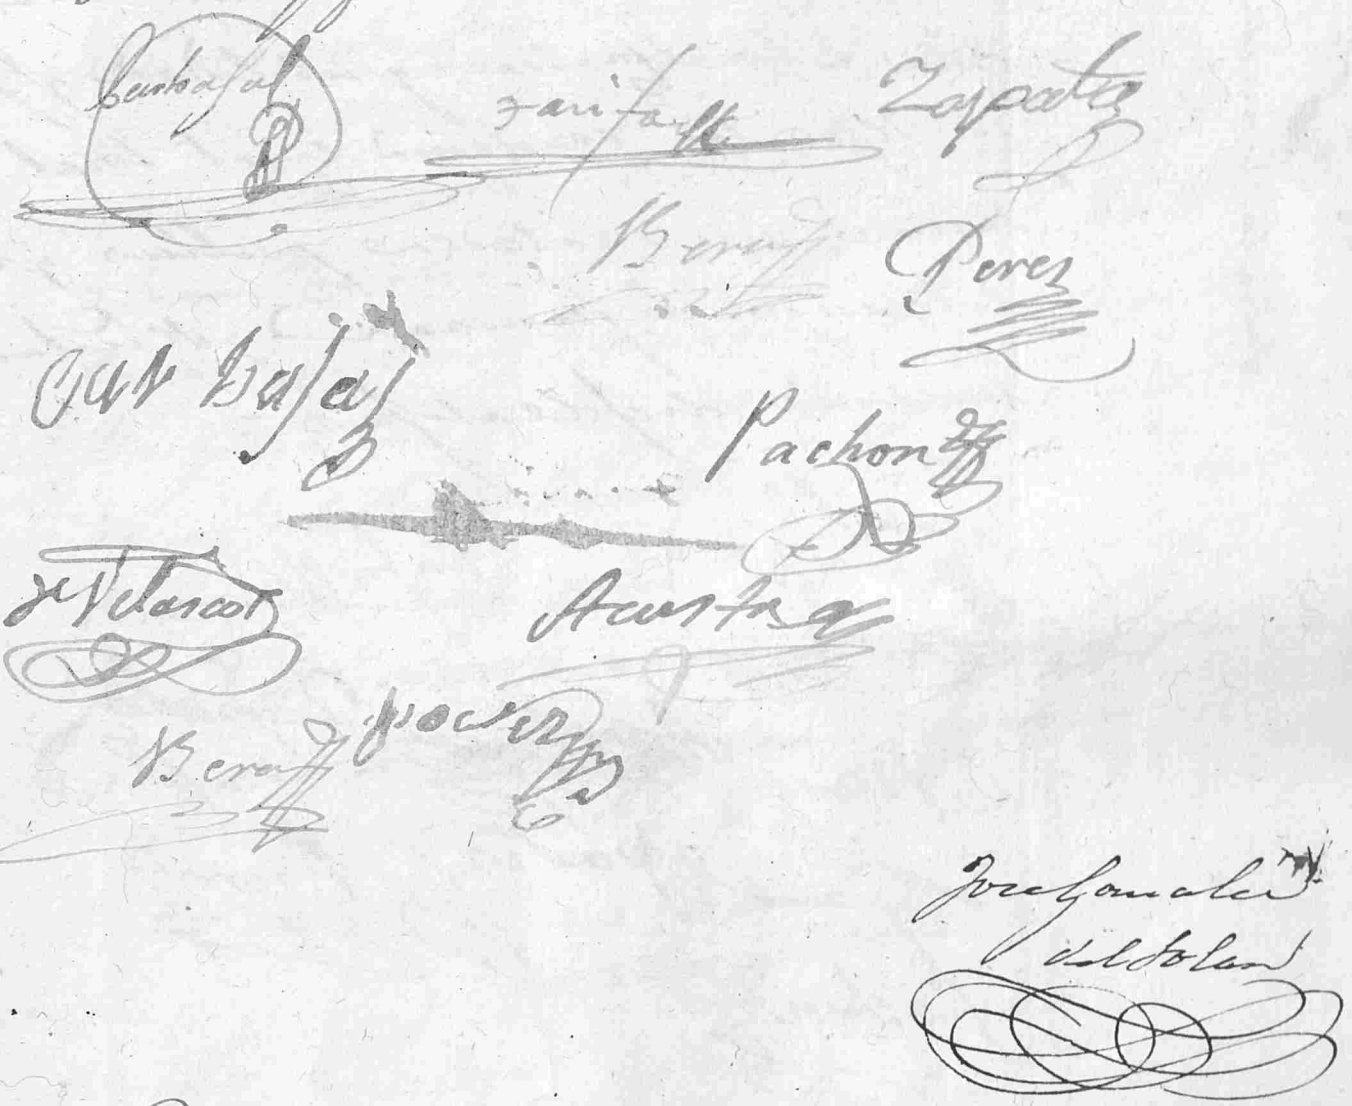 Carbajal Tarifa Zapata
Bera Peres
Carbajal
Pachon
Velasco
Acusta
Bera
Jose Gonzalez
del Solar